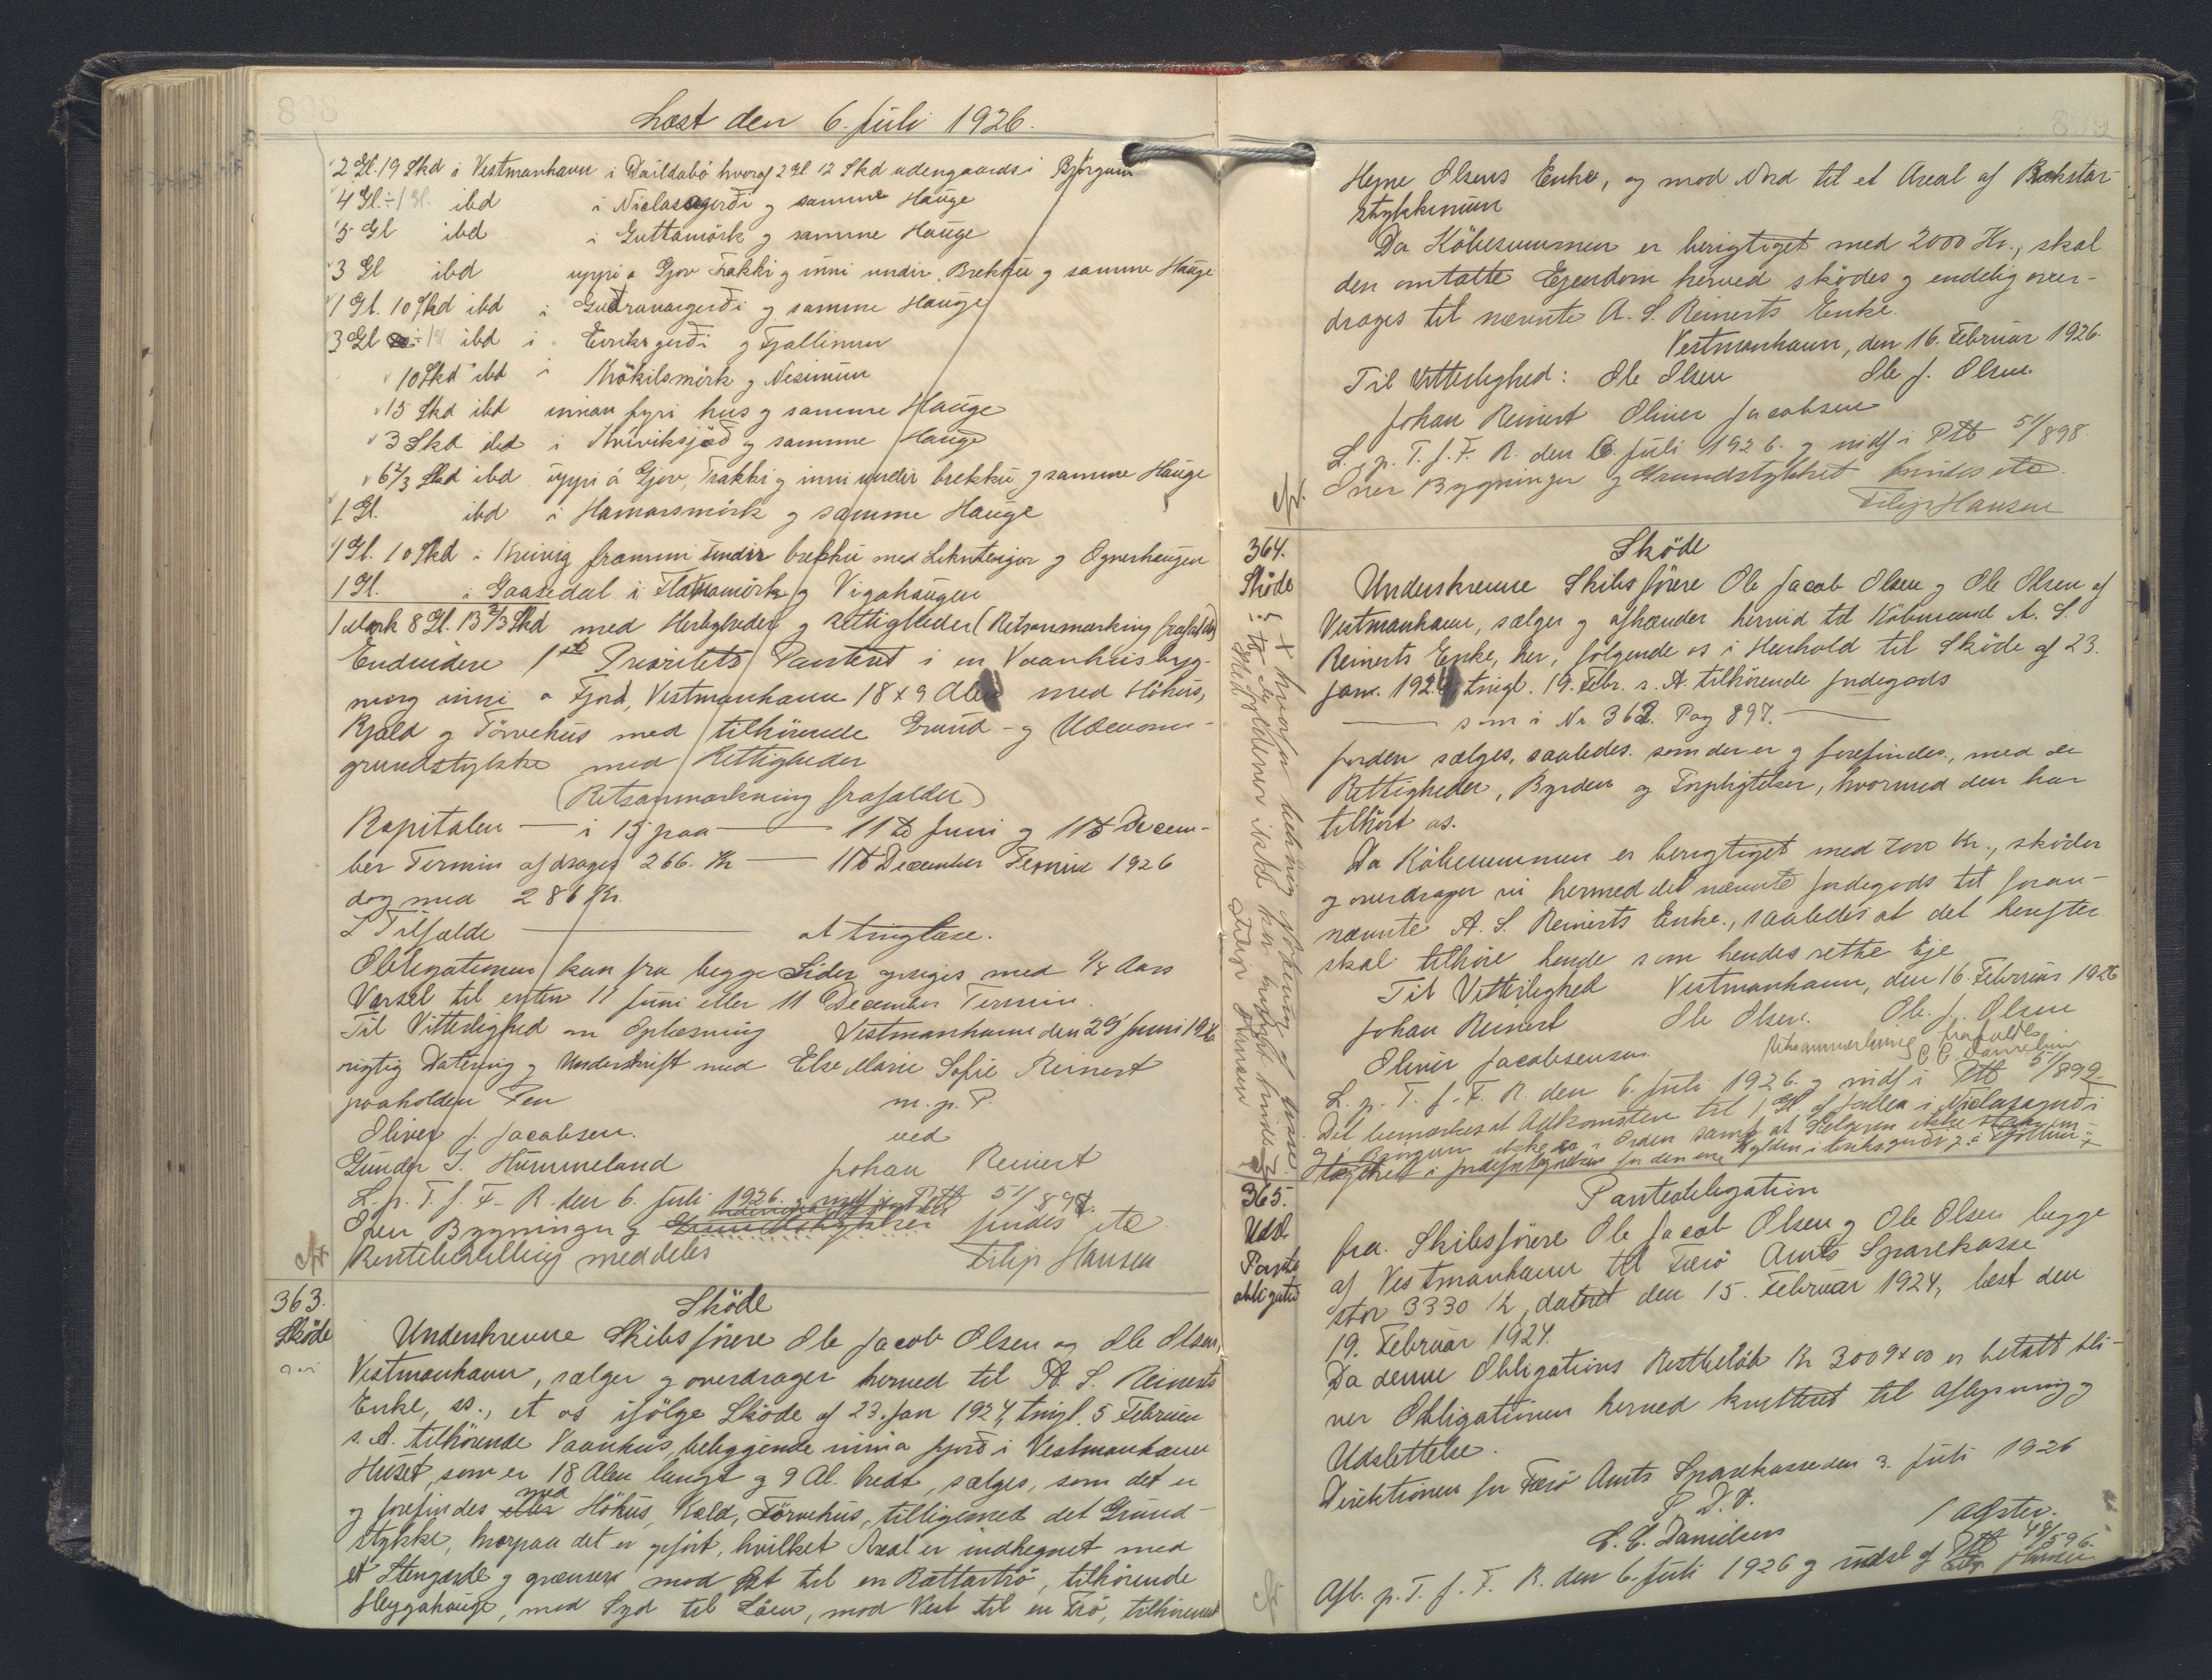 Læst den 6. Juli 1926.
2 Gl. 19 Skd i Vestmanhavn i Daildabö hvoraf 2 Gl 12 Skd udengaards i Björgum
4 Gl. ÷ 1 Gl. ibd i Niclasagerði og samme Hauge
5 Gl ibd i Guttamörk og samme Hauge
3 Gl ibd uppi a Gjov Trakki og inni undir Brekku og samme Hauge
1 Gl. 10 Skd ibd i Guðrunargerði og samme Hauge
3 Gl ÷ 1 Gl ibd i Eiriksgerði og Fjallinum
10 Skd ibd i Krökilsmörk og Nesinum
15 Skd ibd innan fyri hus og samme Hauge
3 Skd ibd i Kviviksjað og samme Hauge
6 2/3 Skd ibd uppi á Gjov, Trakki og inni undir brekku og samme Hauge
1 Gl. ibd i Hamarsmörk og samme Hauge
1 Gl. 10 Skd i Kvivig frammi undir brekku med Liknteigor og Ognerhaugen
1 Gl. i Gaasedal i Flatnamörk og Vigahaugen
1 Mark 8 Gl. 13 2/3 Skd med Herligheder og Rettigheder (Retsanmærkning frafalder)
Endvidere 1ste Prioritets Panteret i en Vaanhusbyg-
ning inni a Fjord, Vestmanhavn 18 x 9 Alen med Höhus,
Kjald og Törvehus med tilhörende Grund- og Udenoms-
grundstykke med Rettigheder
(Retsanmærkning frafalder)
Kapitalen — i 15 paa — 11te Juni og 11te Decem-
ber Termin afdrages 266. Kr — 11te December Termin 1926
dog med 286 Kr.
I Tilfælde — at tinglæse.
Obligationen kan fra begge Sider opsiges med 1/2 Aars
Varsel til enten 11 Juni eller 11 December Termin.
Til Vitterlighed om Oplæsning Vestmanhavn den 29 Juni 1926
rigtig Datering og Underskrift med Else Marie Sofie Reinert
paaholden Pen m. p. P.
Oliver J. Jacobsen. ved
Gunder I. Hummeland Johan Reinert
L. p. T. f. F. R. den 6. Juli 1926 og indf i Ptb 51/897.
Over Bygninger og Grundstykker findes etc
Rentebestilling meddeles Filip Hansen
363. Sköde
Sköde Underskrevne Skibsförere Ole Jacob Olsen og Ole Olsen,
Vestmanhavn, sælger og overdrager hermed til A. S. Reinerts
Enke, ss., et os ifölge Sköde af 23. Jan 1924, tingl. 5 Februar
s. A. tilhörende Vaanhus, beliggende inni a fjorð i Vestmanhavn
Huset, som er 18 Alen langt og 9 Al. bredt, sælges, som det er
og forefindes med Höhus, Kald, Törvehus, tilligemed det Grund-
stykke, hvorpaa det er opfört, hvilket Areal er indhegnet med
et Stengærde og grænser mod Öst til en Rættartrö, tilhörende
Heygahauge, mod Syd til Láen, mod Vest til en Trö, tilhörende
Heine Olsens Enke, og mod Nord til et Areal af Bakstar-
stykkinum
Da Köbesummen er berigtiget med 2000 Kr., skal
den omtalte Ejendom herved sködes og endelig over-
drages til nævnte A. S. Reinerts Enke.
Vestmanhavn, den 16. Februar 1926.
Til Vitterlighed: Ole Olsen Ole J. Olsen
Johan Reinert Oliver Jacobsen
L. p. T. f. F. R. den 6. Juli 1926. og indf i Ptb 51/898.
Over Bygninger og Grundstykket findes etc.
Filip Hansen
364. Sköde
Sköde Underskrevne Skibsförere Ole Jacob Olsen og Ole Olsen af
Vestmanhavn, sælger og afhænder herved til Köbmand A. S.
Reinerts Enke, her, fölgende os i Henhold til Sköde af 23.
Jan. 1924, tingl. 19. Febr. s. A. tilhörende Jordegods
— som i No 362. Pag 897. —
Jorden sælges, saaledes som den er og forefindes, med de
Rettigheder, Byrder og Forpligtelser, hvormed den har
tilhört os.
Da Köbesummen er berigtiget med 7000 Kr., sköder
og overdrager vi hermed det nævnte Jordegods til foran-
nævnte A. S. Reinerts Enke, saaledes at det herefter
skal tilhöre hende som hendes rette Eje
Til Vitterlighed Vestmanhavn, den 16. Februar 1926
Johan Reinert Ole Olsen. Ole. J. Olsen
Oliver Jacobsen Retsanmærkning frafaldt
C. C. Danielsen
L. p. T. f. F. R. den 6. Juli 1926. og indf i Ptb 51/899
Det bemærkes at Adkomsten til 1 Gl. af Jorden i Niclasagerði
og i Björgum ikke er i Orden samt at Sælgeren ikke staar
for den ene Gylden i Eiriksgerði og i Fjöllum x
x hvorfor
Gyldener ikke har
Filip Hansen
365. Panteobligation
Udsl. Pante obligation
fra Skibsförere Ole Jacob Olsen og Ole Olsen begge
af Vestmanhavn til Færö Amts Sparekasse
stor 3330 Kr, dateret den 15. Februar 1924, læst den
19. Februar 1924.
Da denne Obligations Restbelöb Kr 3009 x 00 er betalt bli-
ver Obligationen herved kvitteret til Aflysning og
Udslettelse.
Direktionen for Færö Amts Sparekasse den 3. Juli 1926
P. D. V.
C. C. Danielsen / Agster.
Afl. p. T. f. F. R. den 6. Juli 1926 og udsl af Ptb 48/596.
Filip Hansen